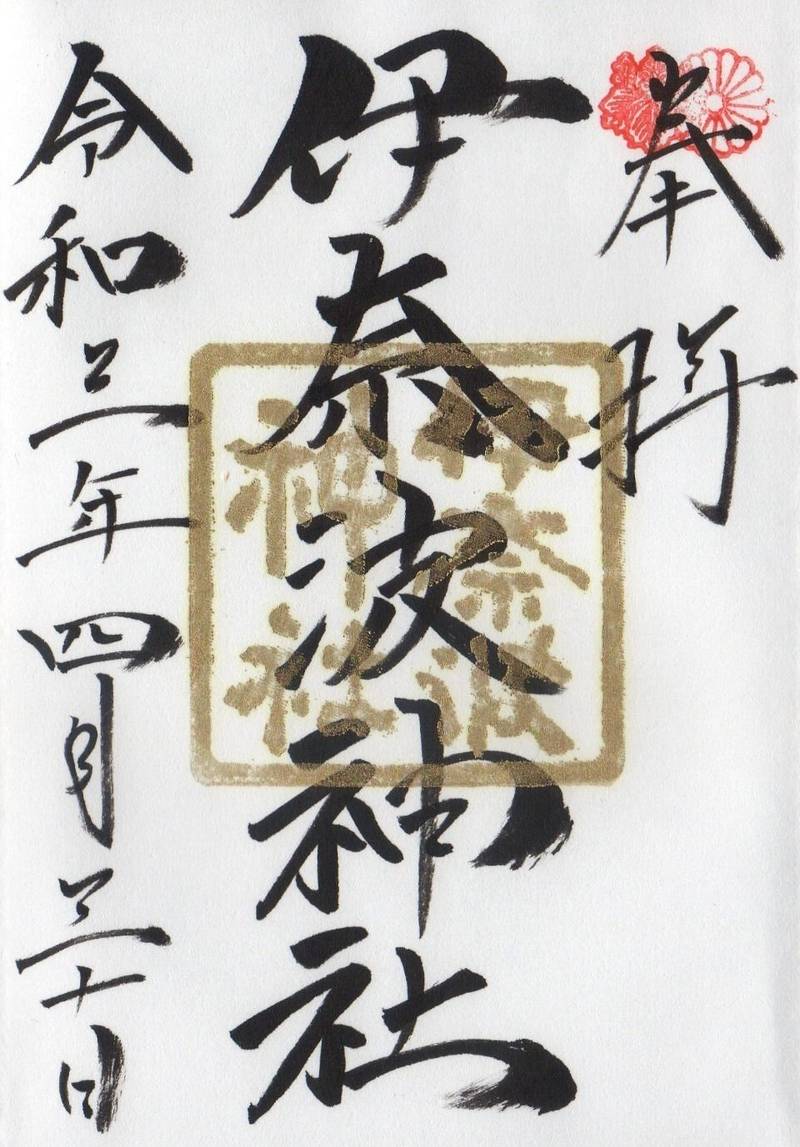 奉拝
伊奈波神社
伊奈波
神社
令和三年四月三十日